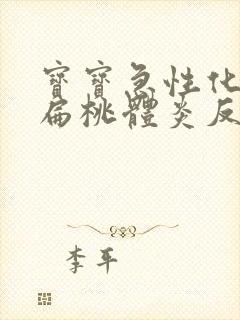 寶寶急性化
扁桃體炎反
李平